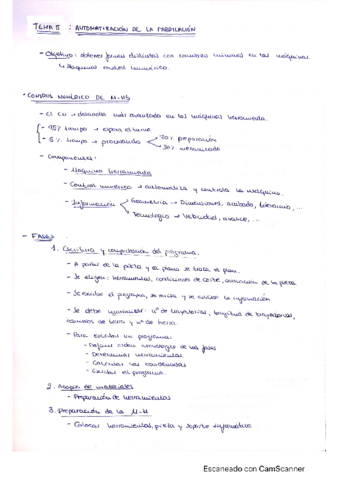 TEMA 5 : AUTOMATIZACIÓN DE LA FABRICACIÓN
- Objetivo: obtener formas distintas con cambios mínimos en las máquinas.
↳ Máquinas control numérico.
- CONTROL NUMÉRICO DE M-H
- El CN → desarrollo más avanzado en las máquinas herramienta.
- 95% tiempo → espera el turno
- 5% tiempo → procesando 70% preparación
30% mecanizado
- Componentes:
- Máquina herramienta
- Control numérico → automatiza y controla la máquina.
- Información Geometría → Dimensiones, acabado, tolerancia, ...
Tecnología → Velocidad, avance, ...
- FASES
1. Escritura y comprobación del programa.
- A partir de la pieza y el plano se traza el plan.
- Se eligen: herramientas, condiciones de corte, de la pieza
- Se escribe el programa, se y se la información
- Se debe minimizar: nº de trayectorias, longitud de trayectorias,
cambios de herra y nº de herra.
- Para escribir un programa:
- Definir orden cronológico de las fases
- Determinar herramientas
- Calcular las coordenadas
- Escribir el programa
2. Acopio de materiales
- Preparación de herramientas
3. Preparación de la M-H
- Colocar herramientas, pieza y soporte informático
Escaneado con CamScanner